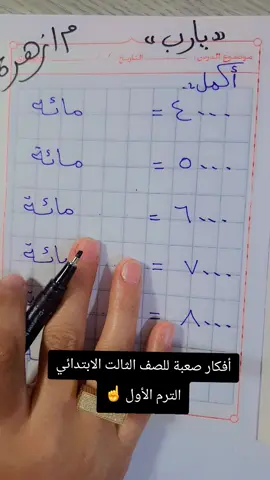 «يارب» م ازهرة
موضوع الدرس التاريخ
أكمل..
٤٠٠٠ = مائة
٥٠٠٠ = مائة
٦٠٠٠ = مائة
٧٠٠٠ = مائة
٨٠٠٠ =
أفكار صعبة للصف الثالث الابتدائي
الترم الأول ☝️